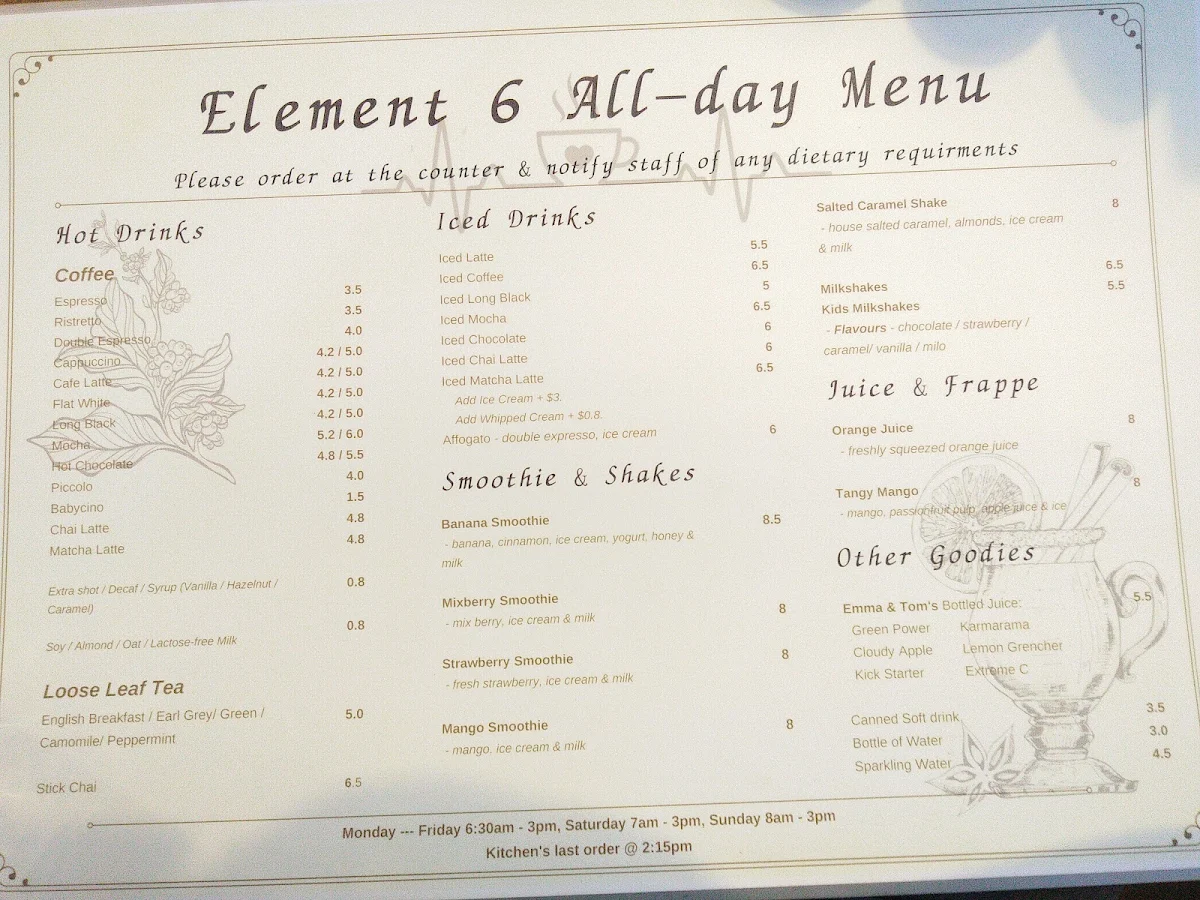 Element 6 All-day Menu
Please order at the counter & notify staff of any dietary requirments
Hot Drinks
Coffee
Espresso 3.5
Ristretto 3.5
Double Espresso 4.0
Cappuccino 4.2 / 5.0
Cafe Latte 4.2 / 5.0
Flat White 4.2 / 5.0
Long Black 4.2 / 5.0
Mocha 5.2 / 6.0
Hot Chocolate 4.8 / 5.5
Piccolo 4.0
Babycino 1.5
Chai Latte 4.8
Matcha Latte 4.8
Extra shot / Decaf / Syrup (Vanilla / Hazelnut / 0.8
Caramel)
Soy / Almond / Oat / Lactose-free Milk 0.8
Loose Leaf Tea
English Breakfast / Earl Grey/ Green / 5.0
Camomile/ Peppermint
Stick Chai 6.5
Iced Drinks
Iced Latte 5.5
Iced Coffee 6.5
Iced Long Black 5
Iced Mocha 6.5
Iced Chocolate 6
Iced Chai Latte 6
Iced Matcha Latte 6.5
Add Ice Cream + $3.
Add Whipped Cream + $0.8.
Affogato - double expresso, ice cream 6
Smoothie & Shakes
Banana Smoothie 8.5
- banana, cinnamon, ice cream, yogurt, honey &
milk
Mixberry Smoothie 8
- mix berry, ice cream & milk
Strawberry Smoothie 8
- fresh strawberry, ice cream & milk
Mango Smoothie 8
- mango, ice cream & milk
Salted Caramel Shake 8
- house salted caramel, almonds, ice cream
& milk
Milkshakes 6.5
Kids Milkshakes 5.5
- Flavours - chocolate / strawberry /
caramel/ vanilla / milo
Juice & Frappe
Orange Juice 8
- freshly squeezed orange juice
Tangy Mango 8
- mango, passionfruit pulp, apple juice & ice
Other Goodies
Emma & Tom's Bottled Juice: 5.5
Green Power Karmarama
Cloudy Apple Lemon Grencher
Kick Starter Extreme C
Canned Soft drink 3.5
Bottle of Water 3.0
Sparkling Water 4.5
Monday --- Friday 6:30am - 3pm, Saturday 7am - 3pm, Sunday 8am - 3pm
Kitchen's last order @ 2:15pm